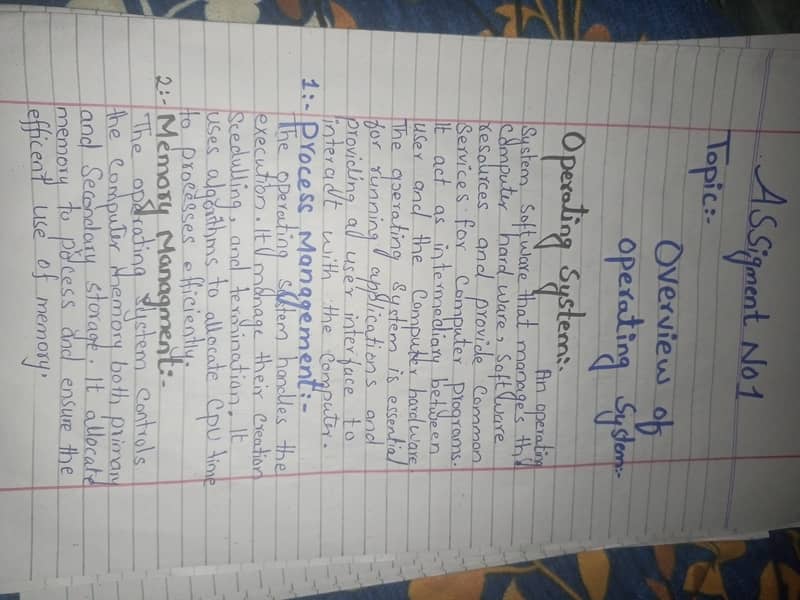 ASSigment No 1
Topic:-
Overview of
operating System:-
Operating System:-
An operating
System Software that manages the
Computer hard ware, Soft ware
resources and provide Common
Services for Computer programs.
It act as intermediary between
user and the Computer hardware.
The operating System is essential
for running applications and
providing a user interface to
interact with the Computer.
1:- Process Management:-
The operating system handles the
execution. It manage their creation
Scedulling, and termination. It
uses algorithms to allocate Cpu time
to processes efficiently.
2:- Memory Managment:-
The operating System Controls
the Computer Memory both primary
and Secondary storage. It allocate
memory to process and ensure the
efficent use of memory.